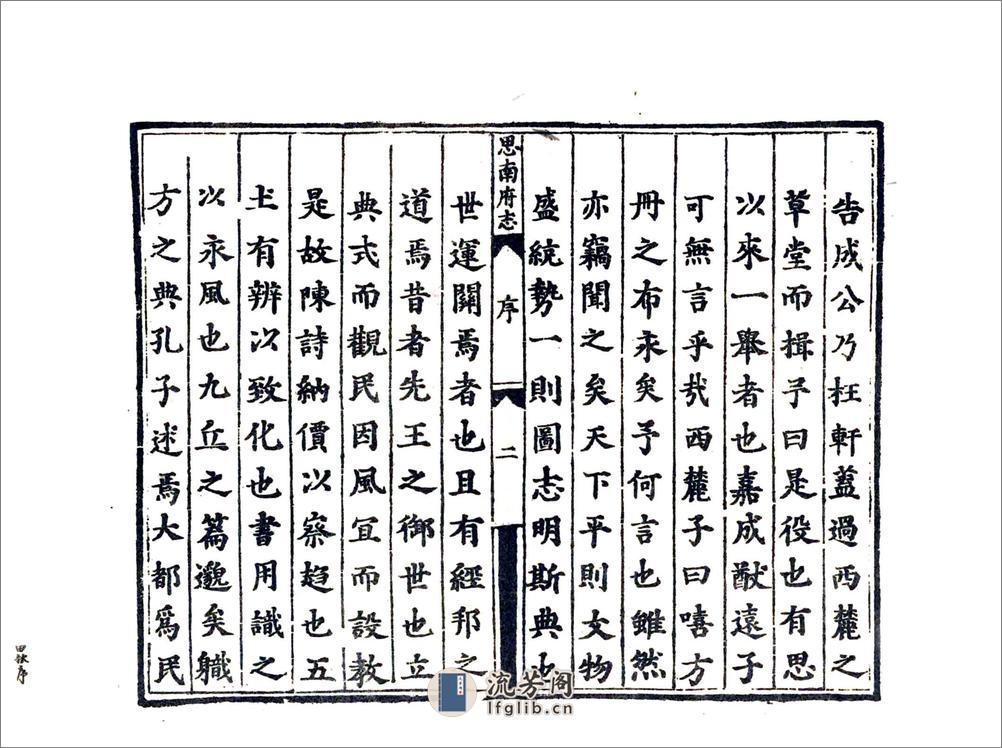 告成公乃枉軒蓋過西麓之
草堂而揖予曰是役也有思
以來一舉者也嘉成猷遠子
可無言乎哉西麓子曰嘻方
冊之布永矣予何言也雖然
亦竊聞之矣天下平則文物
盛統勢一則圖志明斯典也
思南府志
序
二
世運關焉者也且有經邦之
道焉昔者先王之御世也立
典式而觀民因風冝而設教
是故陳詩納價以察趋也五
土有辨以致化也書用識之
以永風也九丘之篇邈矣職
方之典孔子述焉大都為民
田秋序
流芳阁
lfglib.cn